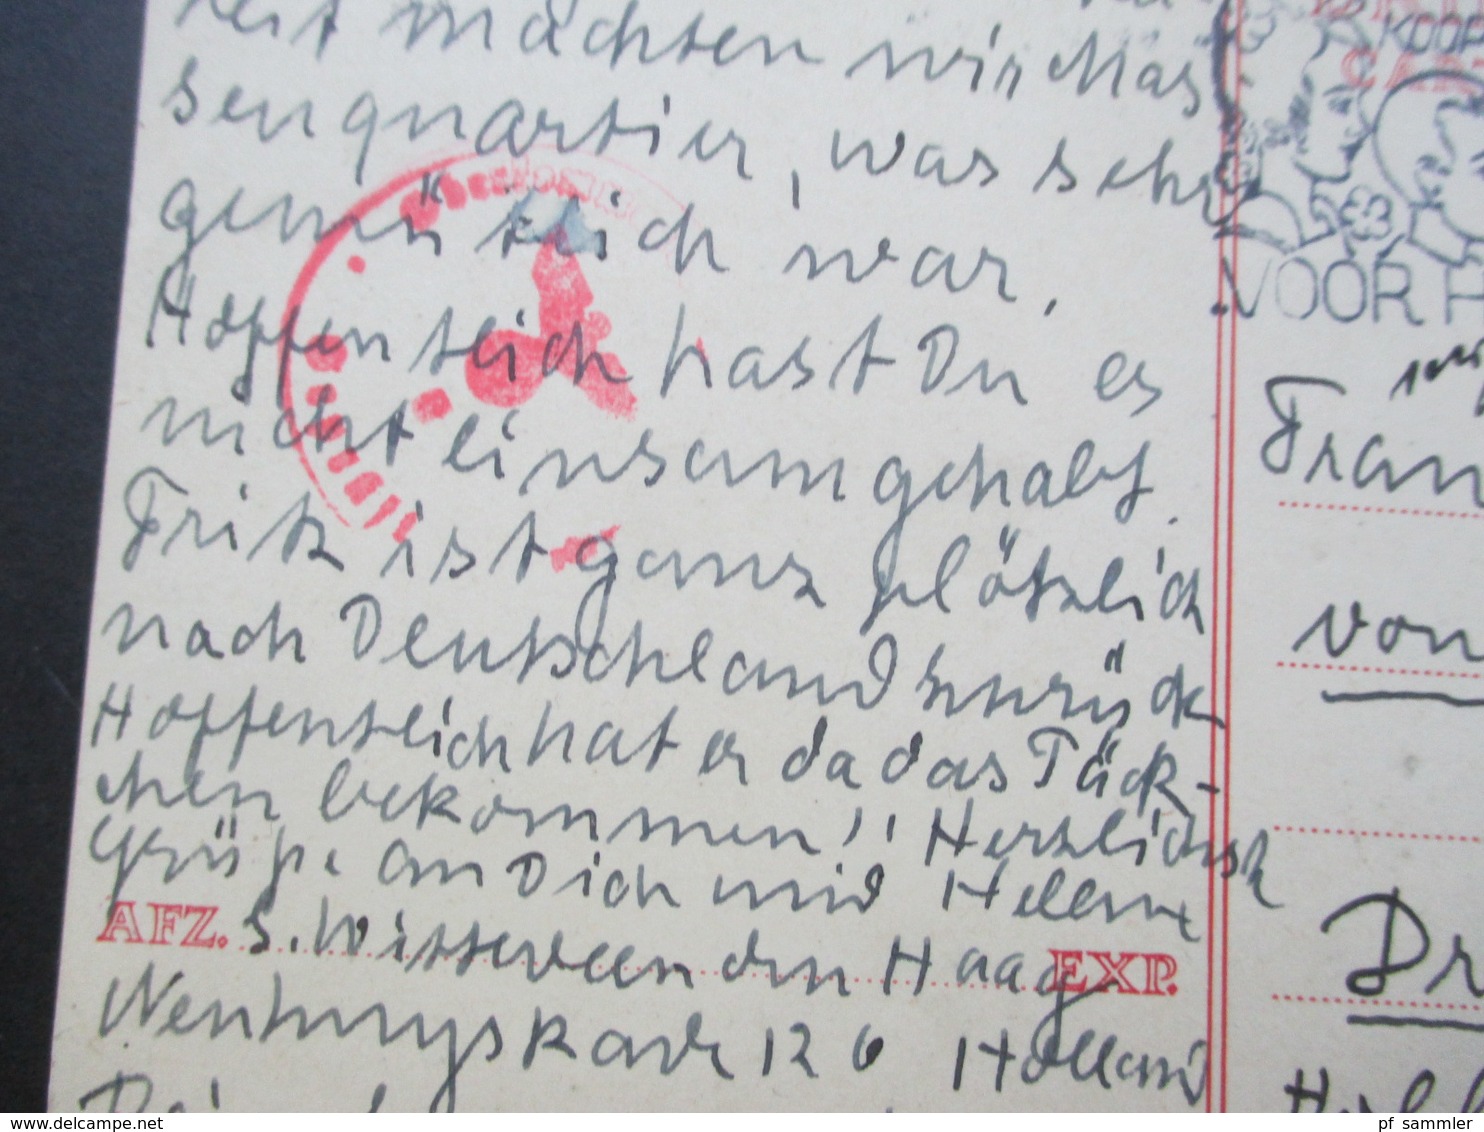 machten wir Mas
senquartier, was sehr
gemütlich war.
Hoffentlich hast Du es
nicht einsam gehabt.
Fritz ist ganz plötzlich
nach Deutschland zurück
Hoffentlich hat er da das Päck-
chen bekommen!! Herzlichste
Grüße an Dich und Hellen
AFZ. S. Witteveen den Haag EXP.
126 Holland
KOOP
VOOR H
Fran
von
Dr
delcampe.net
pf_sammler